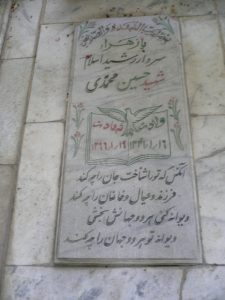 یا زهرا
سردار رشید اسلام
شهید حسین محمدی
ولادت شهادت
۱۳۴۱/۰۱/۱۶ ۱۳۶۶/۰۱/۱۹
آنکس که تو را شناخت جان را چه کند
فرزند و عیال و خانمان را چه کند
دیوانه کنی هر دو جهانش بخشی
دیوانه تو هر دو جهان را چه کند